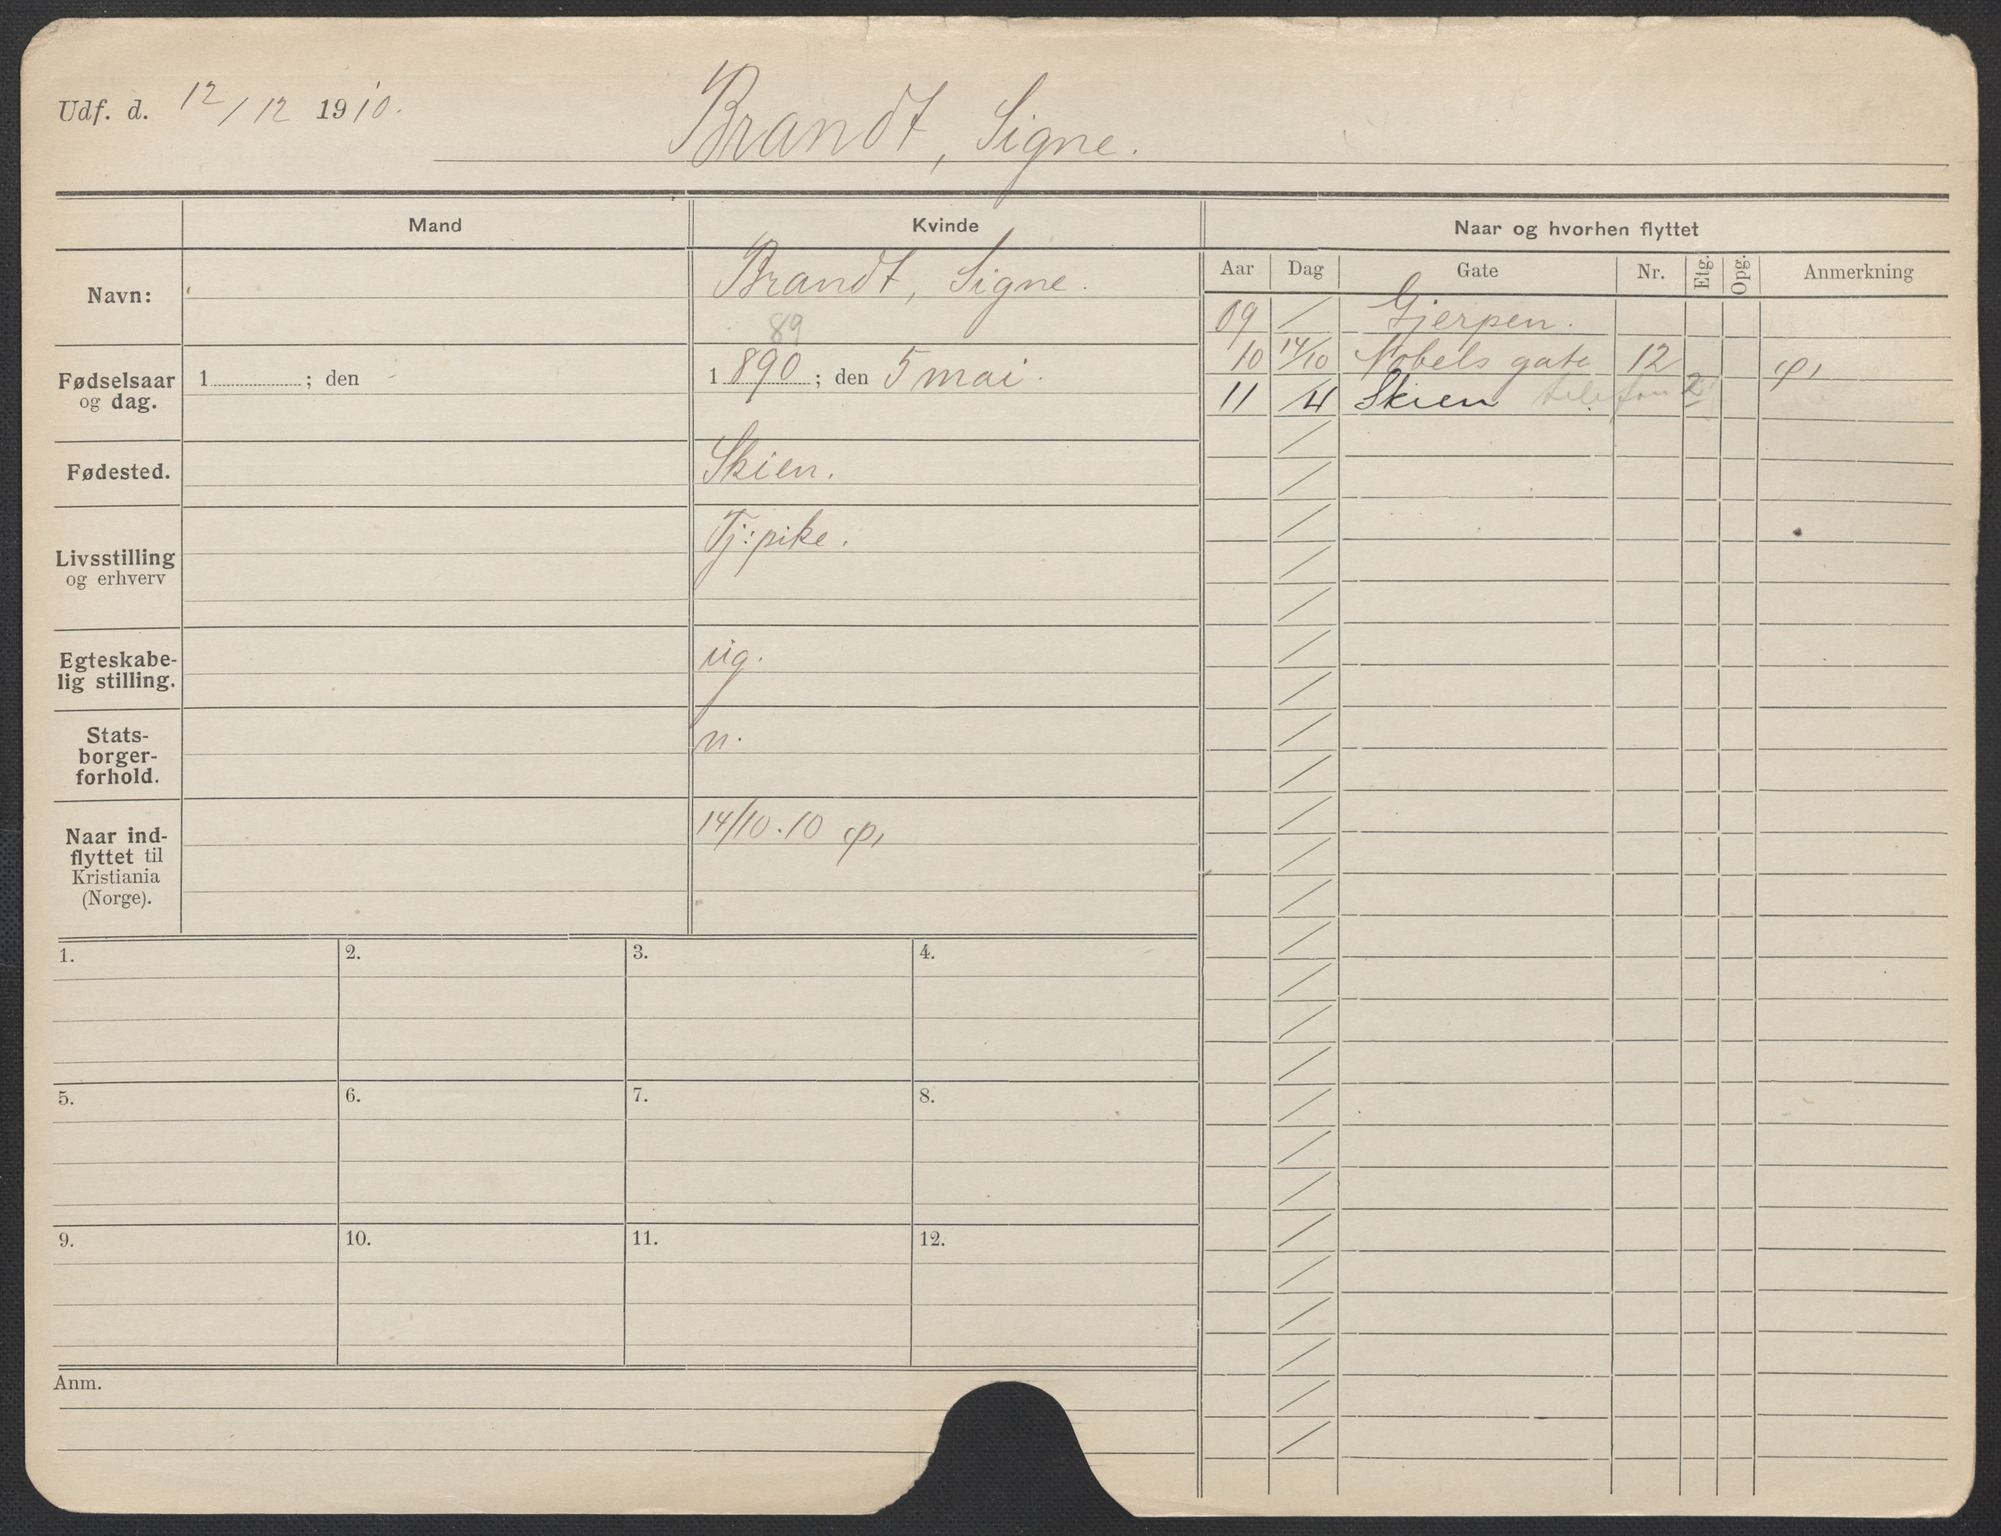 Udf. d. 12/12 1910.
Brandt, Signe.
Mand
Kvinde
Naar og hvorhen flyttet
Aar
Dag
Gate
Nr.
Etg.
Opg.
Anmerkning
Navn:
Brandt, Signe.
89
Fødselsaar
og dag.
1 ; den
1 890 ; den 5 mai.
Fødested.
Skien.
Livsstilling
og erhverv
Tj: pike.
Egteskabe-
lig stilling.
ug.
Stats-
borger-
forhold.
n.
Naar ind-
flyttet til
Kristiania
(Norge).
14/10.10
09 / Gjerpen.
10 14/10 Nobels gate 12
11 /4 Skien telefon 2
1.
2.
3.
4.
5.
6.
7.
8.
9.
10.
11.
12.
Anm.